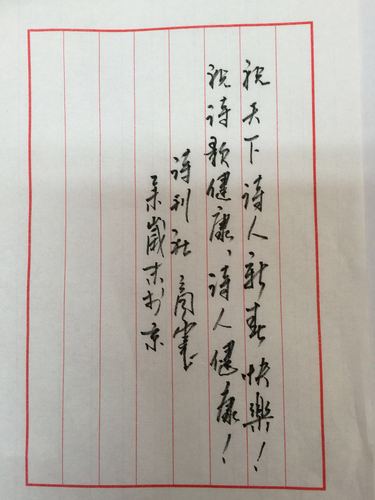 祝天下诗人新春快樂！
祝诗歌健康、诗人健康！
诗刊社 商震
羊歲末於京